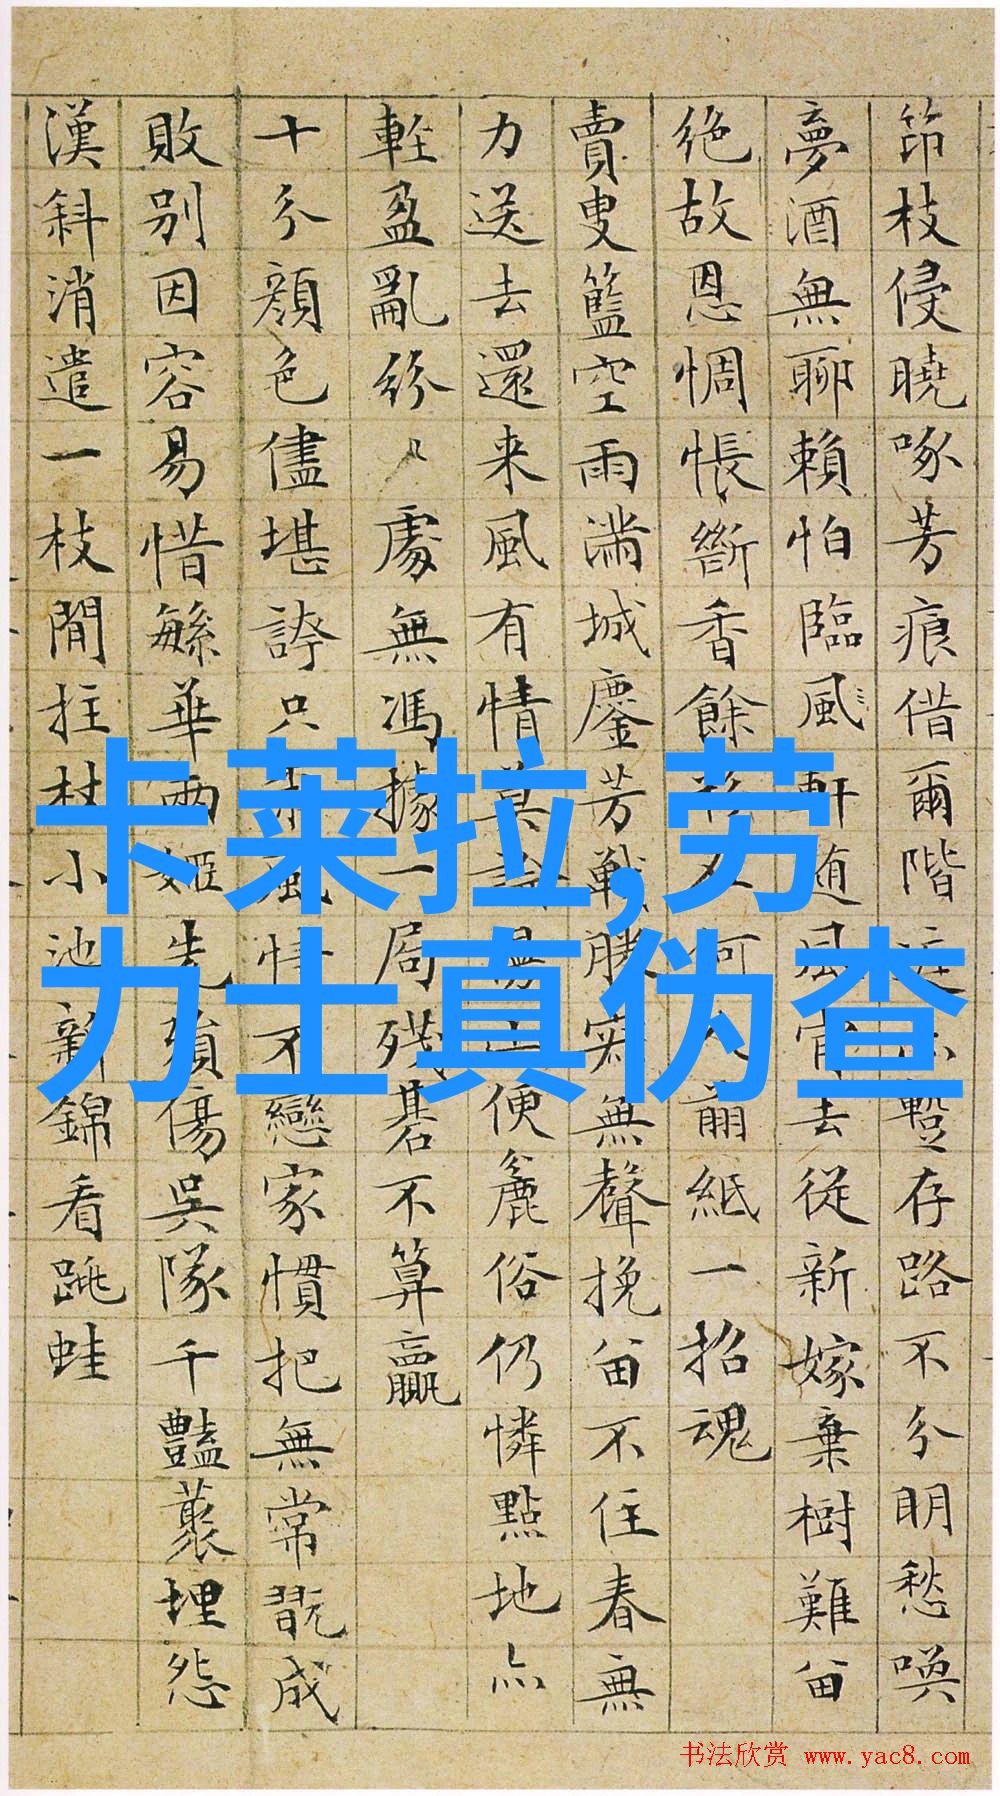 筇枝侵曉啄芳痕借爾階蹔存路不分明愁喚
夢酒無聊賴怕臨風軒隨風去從新嫁棄樹難畱
絶故恩惆悵斷香餘何人翦紙一招魂
賣叟籃空雨滿城鏖芳戰勝寂無聲挽畱不住春無
力送去還来風有情莫論便麄俗仍憐點地亦
輕盈亂紛〻處無馮據一局殘碁不算贏
十分顏色儘堪誇只風情不戀家慣把無常翫成
敗别因容易惜緐華兩姬先殞傷吳隊千豔叢埋怨
漢斜消遣一枝閒拄杖小池新錦看跳蛙
卡莱拉,劳
力士真伪查
书法欣赏 www.yac8.com